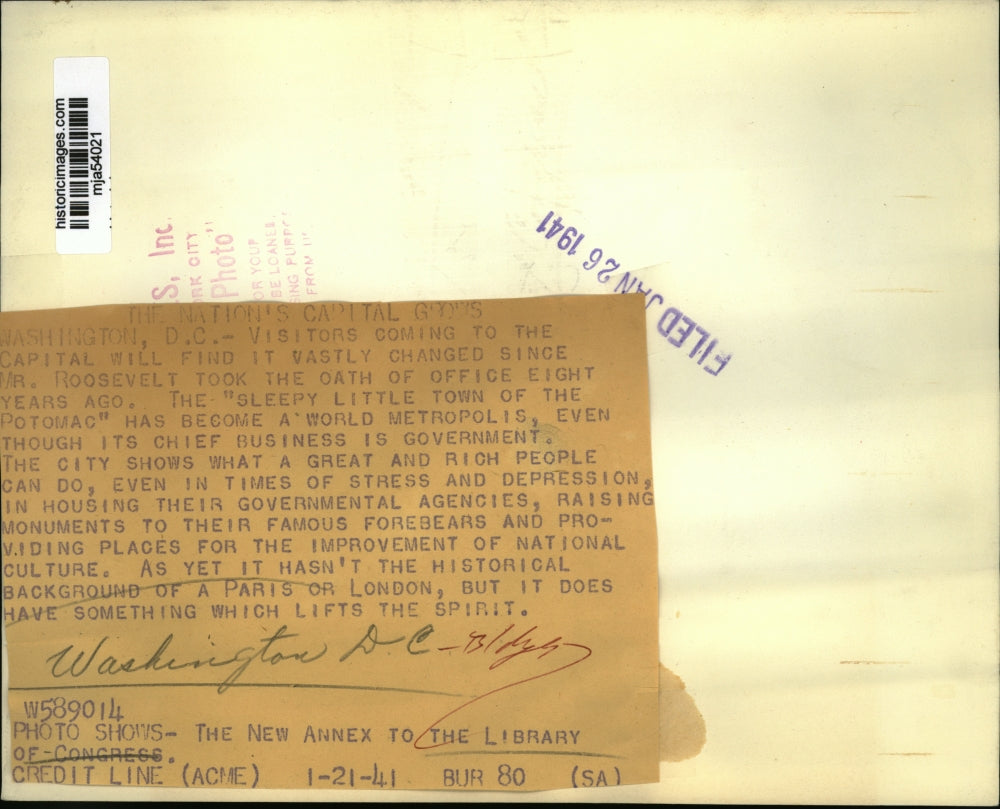 historicimages.com
mja54021
S, Inc.
RK CITY
Photo"
OR YOUR
BE LOANED
SING PURPO
FROM
FILED JAN 26 1941
THE NATION'S CAPITAL GROWS
WASHINGTON, D.C.- VISITORS COMING TO THE
CAPITAL WILL FIND IT VASTLY CHANGED SINCE
MR. ROOSEVELT TOOK THE OATH OF OFFICE EIGHT
YEARS AGO. THE "SLEEPY LITTLE TOWN OF THE
POTOMAC" HAS BECOME A WORLD METROPOLIS, EVEN
THOUGH ITS CHIEF BUSINESS IS GOVERNMENT.
THE CITY SHOWS WHAT A GREAT AND RICH PEOPLE
CAN DO, EVEN IN TIMES OF STRESS AND DEPRESSION,
IN HOUSING THEIR GOVERNMENTAL AGENCIES, RAISING
MONUMENTS TO THEIR FAMOUS FOREBEARS AND PRO-
VIDING PLACES FOR THE IMPROVEMENT OF NATIONAL
CULTURE. AS YET IT HASN'T THE HISTORICAL
BACKGROUND OF A PARIS OR LONDON, BUT IT DOES
HAVE SOMETHING WHICH LIFTS THE SPIRIT.
Washington D C - Bldgs
W589014
PHOTO SHOWS- THE NEW ANNEX TO THE LIBRARY
OF-CONGRESS.
CREDIT LINE (ACME) 1-21-41 BUR 80 (SA)